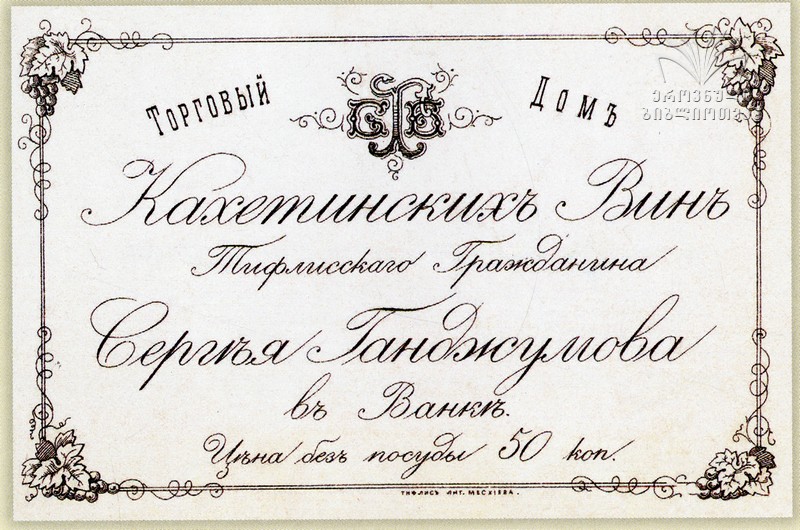 Торговый Домъ
Кахетинскихъ Винъ
Тифлисскаго Гражданина
Сергѣя Ганджумова
въ Ванкѣ.
Цѣна безъ посуды 50 коп.
ТИФЛИСЪ ЛИТ. МЕСХІЕВА.
ეროვნული
ბიბლიოთეკა